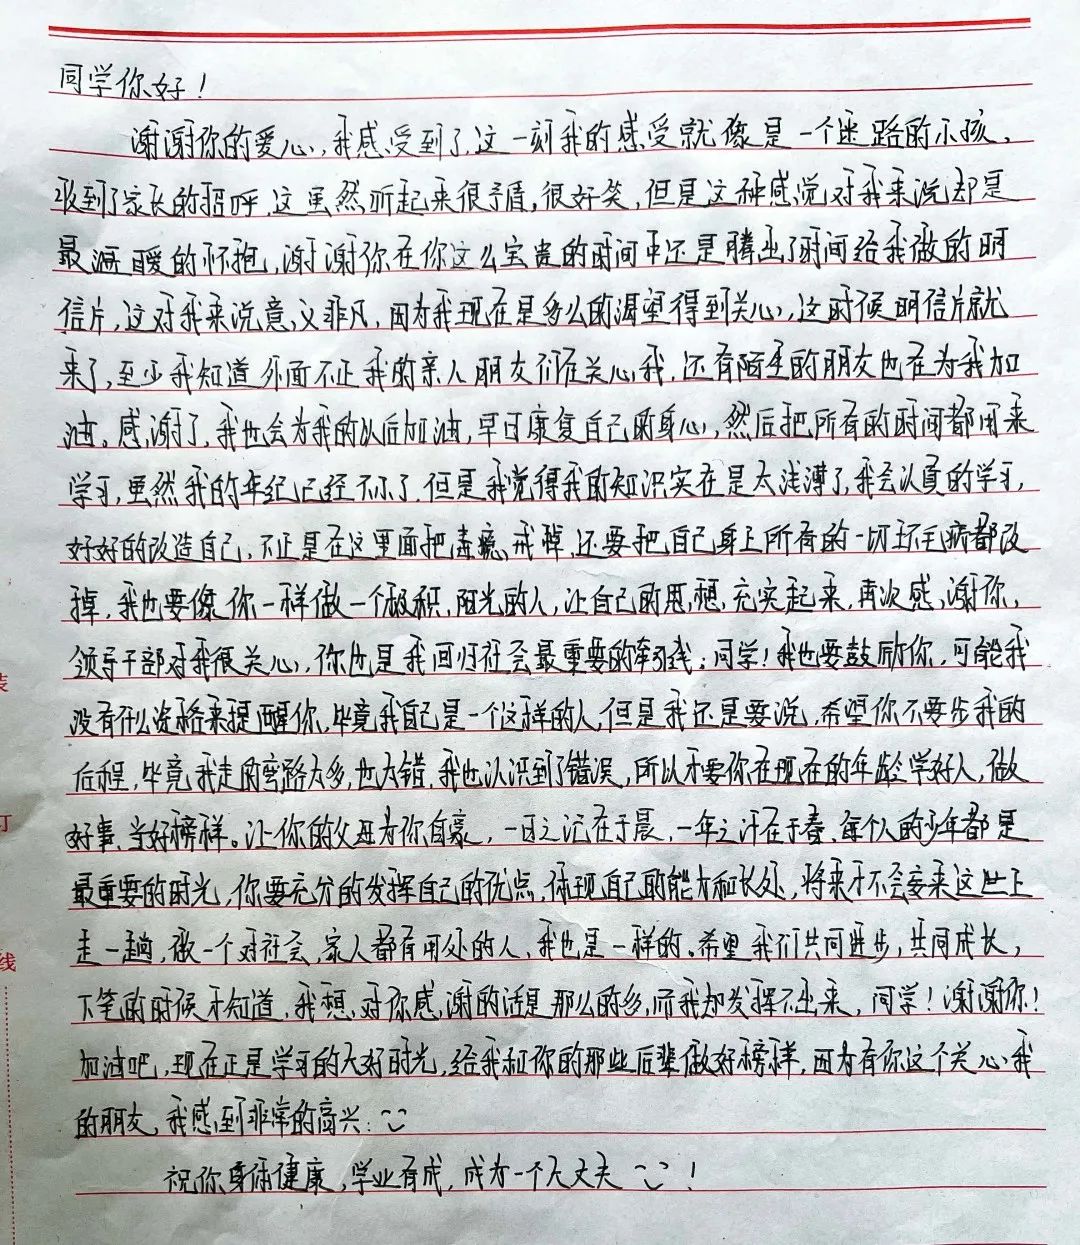 同学你好！
谢谢你的爱心，我感受到了，这一刻我的感受就像是一个迷路的小孩，
收到了家长的招呼，这虽然听起来很矛盾，很好笑，但是这种感觉对我来说却是
最温暖的怀抱，谢谢你在你这么宝贵的时间中还是腾出了时间给我做的明
信片，这对我来说意义非凡，因为我现在是多么的渴望得到关心，这时候明信片就
来了，至少我知道外面不止我的亲人朋友们在关心我，还有陌生的朋友也在为我加
油，感谢了，我也会为我的以后加油，早日康复自己的身心，然后把所有的时间都用来
学习，虽然我的年纪已经不小了，但是我觉得我的知识实在是太浅薄了，我会认真的学习，
好好的改造自己，不止是在这里面把毒瘾戒掉，还要把自己身上所有的一切坏毛病都改
掉，我也要像你一样做一个极积，阳光的人，让自己的思想充实起来，再次感谢你，
领导干部对我很关心，你也是我回归社会最重要的牵引线；同学！我也要鼓励你，可能我
没有什么资格来提醒你，毕竟我自己是一个这样的人，但是我还是要说，希望你不要步我的
后程，毕竟我走的弯路太多，也太错，我也认识到了错误，所以才要你在现在的年龄学好人，做
好事，当好榜样。让你的父母为你自豪，一日之记在于晨，一年之汁在于春，每个人的少年都是
最重要的时光，你要充分的发挥自己的优点，体现自己的能力和长处，将来才不会妄来这世上
走一趟，做一个对社会，家人都有用处的人，我也是一样的。希望我们共同进步，共同成长，
下笔的时候才知道，我想对你感谢的话是那么的多，而我却发挥不出来，同学！谢谢你！
加油吧，现在正是学习的大好时光，给我和你的那些后辈做好榜样，因为有你这个关心我
的朋友，我感到非常的高兴：
祝你身体健康，学业有成，成为一个大丈夫！
装
订
线